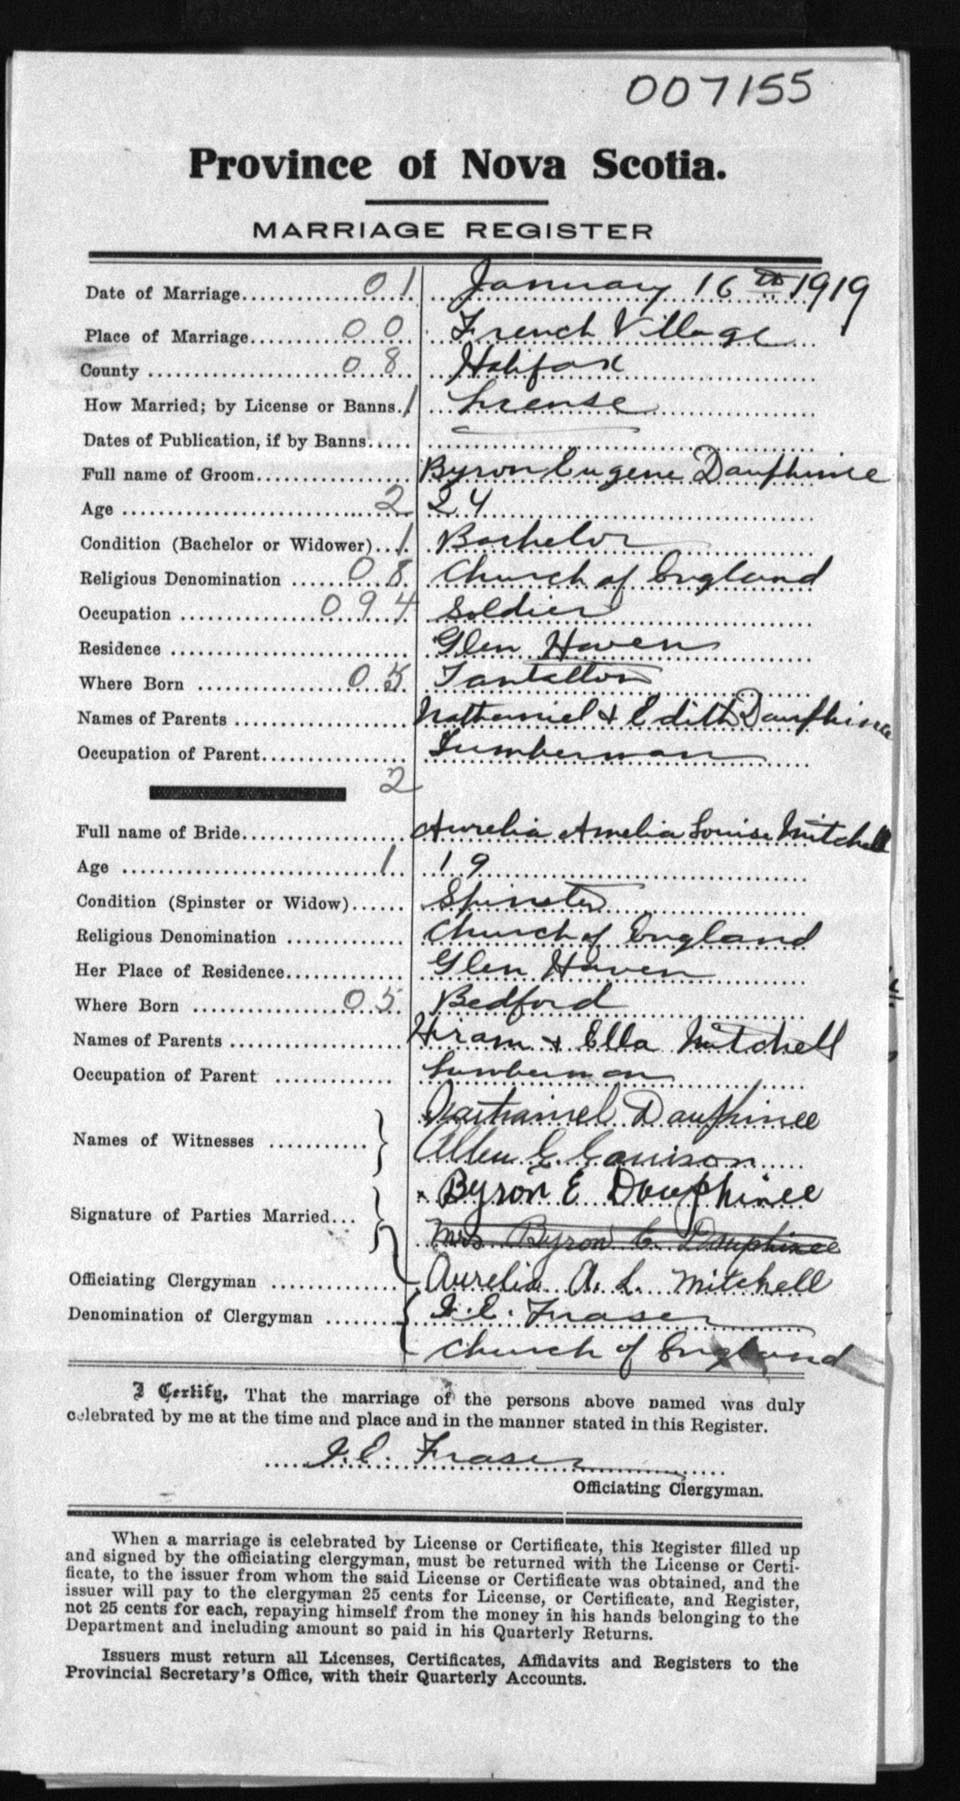 007155
Province of Nova Scotia.
MARRIAGE REGISTER
Date of Marriage 01 January 16th 1919
Place of Marriage 00 French Village
County 08 Halifax
How Married; by License or Banns. 1 License
Dates of Publication, if by Banns
Full name of Groom Byron Eugene Dauphinee
Age 2 24
Condition (Bachelor or Widower) 1 Bachelor
Religious Denomination 08 Church of England
Occupation 094 Soldier
Residence Glen Haven
Where Born 05 Tantallon
Names of Parents Nathaniel & Edith Dauphinee
Occupation of Parent Lumberman
2
Full name of Bride Aurelia Amelia Louise Mitchell
Age 1 19
Condition (Spinster or Widow) Spinster
Religious Denomination Church of England
Her Place of Residence Glen Haven
Where Born 05 Bedford
Names of Parents Hiram & Ella Mitchell
Occupation of Parent Lumberman
Names of Witnesses Nathaniel Dauphinee
Allen E.
Signature of Parties Married Byron E Dauphinee
Mrs. Byron E. Dauphinee
Officiating Clergyman Aurelia A. L. Mitchell
Denomination of Clergyman Fraser
Church of England
I Certify, That the marriage of the persons above named was duly
celebrated by me at the time and place and in the manner stated in this Register.
Fraser
Officiating Clergyman.
When a marriage is celebrated by License or Certificate, this Register filled up
and signed by the officiating clergyman, must be returned with the License or Certi-
ficate, to the issuer from whom the said License or Certificate was obtained, and the
issuer will pay to the clergyman 25 cents for License, or Certificate, and Register,
not 25 cents for each, repaying himself from the money in his hands belonging to the
Department and including amount so paid in his Quarterly Returns.
Issuers must return all Licenses, Certificates, Affidavits and Registers to the
Provincial Secretary's Office, with their Quarterly Accounts.